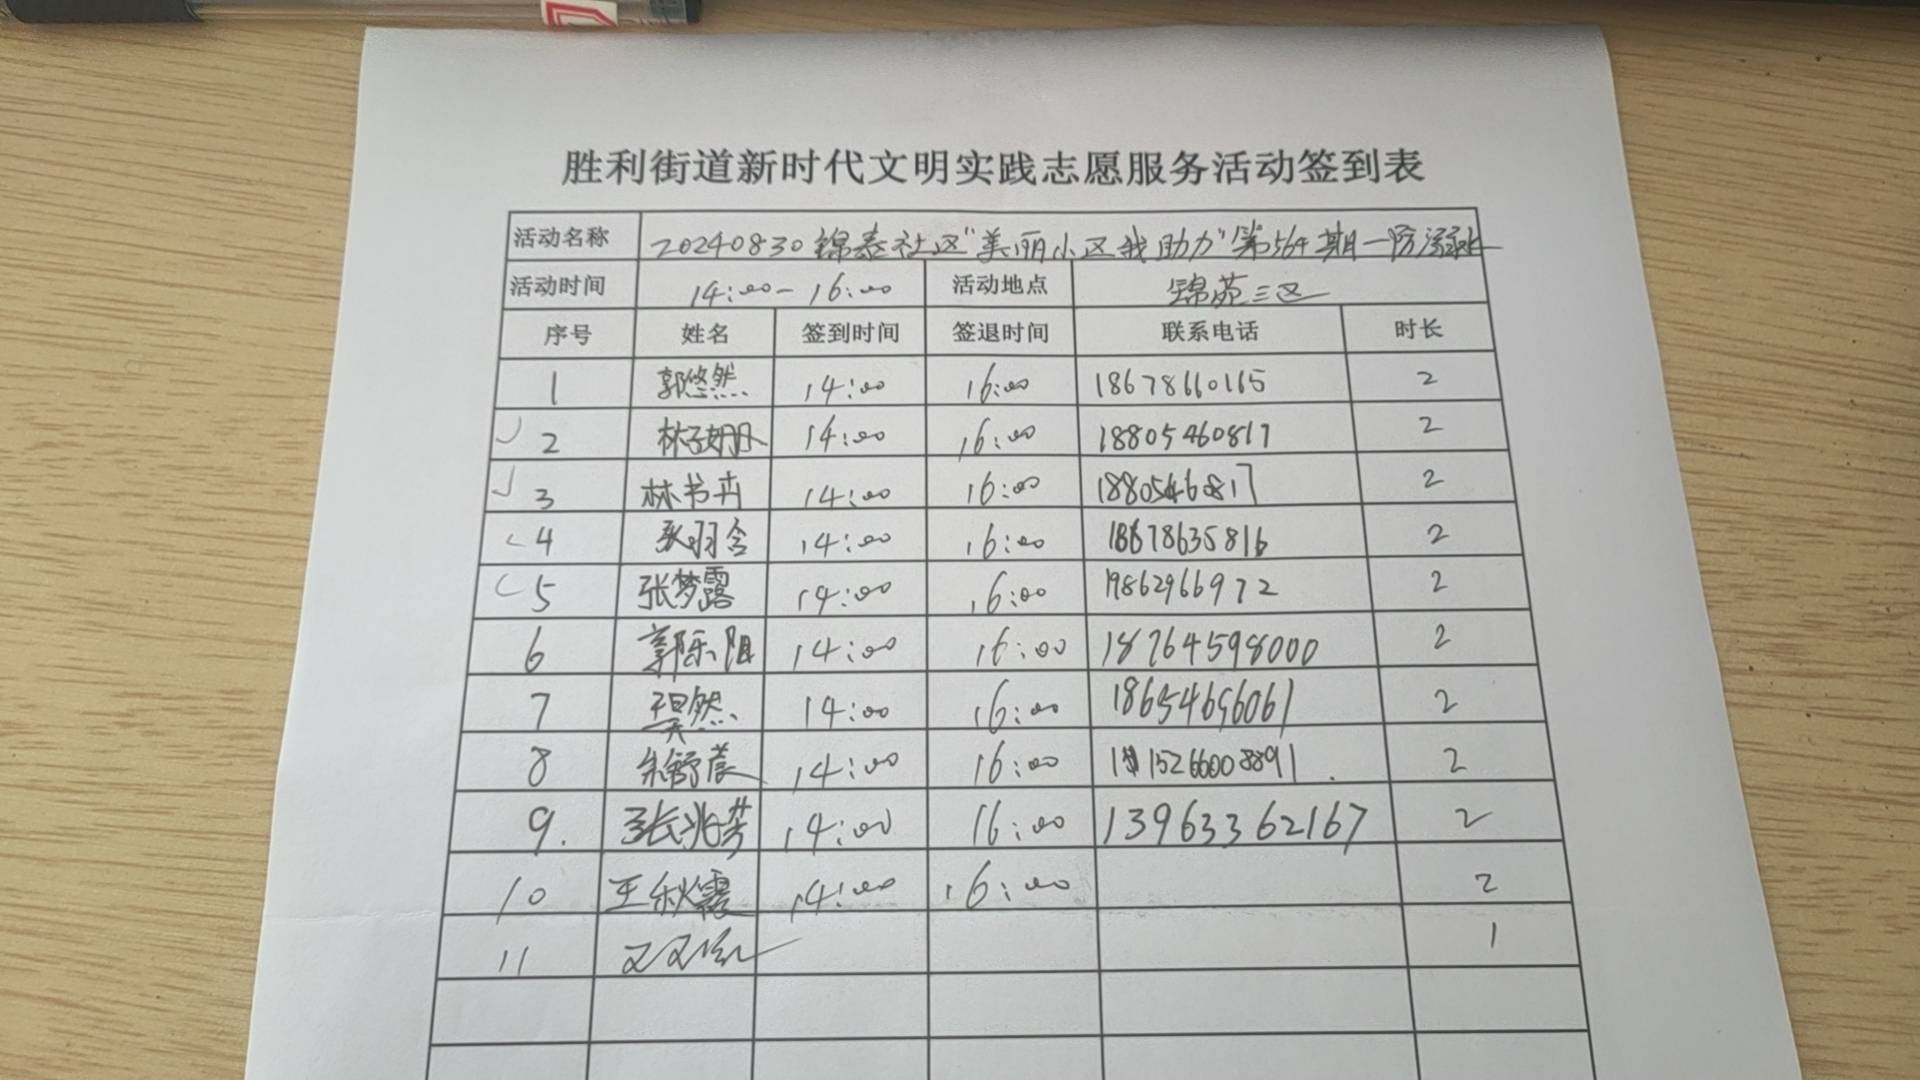 胜利街道新时代文明实践志愿服务活动签到表
活动名称 20240830锦泰社区"美丽小区我助力"第564期—防溺水
活动时间 14:00-16:00 活动地点 锦苑三区
序号 姓名 签到时间 签退时间 联系电话 时长
1 郭悠然 14:00 16:00 18678660165 2
2 林子姗 14:00 16:00 18805460817 2
3 林书卉 14:00 16:00 18805460817 2
4 张羽含 14:00 16:00 18678635816 2
5 张梦露 14:00 16:00 19862966972 2
6 郭乐阳 14:00 16:00 18764598000 2
7 14:00 16:00 18654696061 2
8 朱舒晨 14:00 16:00 15266008891 2
9. 张兆芳 14:00 16:00 13963362167 2
10 王秋霞 14:00 16:00 2
11 1